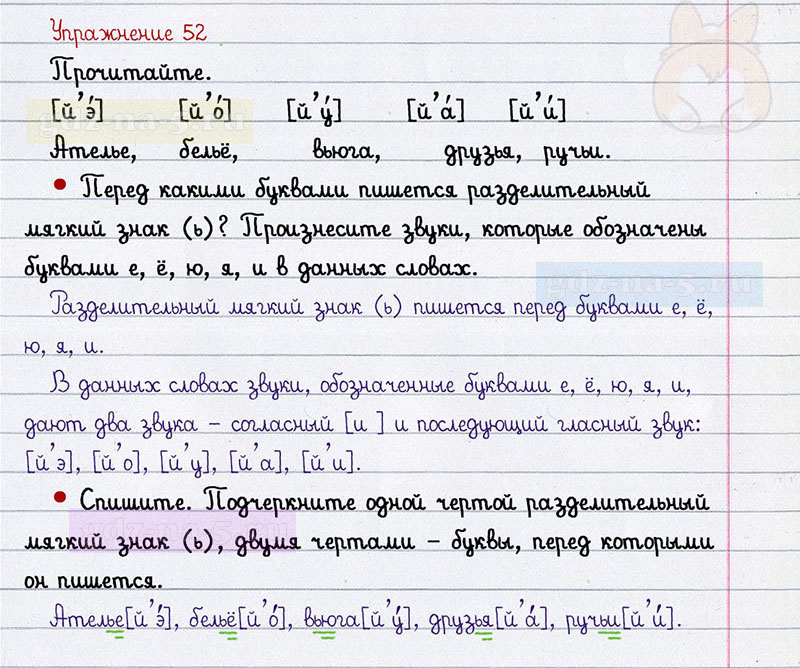 Упражнение 52
Прочитайте.
[й’э́] [й’о́] [й’у́] [й’а́] [й’и́]
gdz-na-5.ru
Ателье, бельё, вьюга, друзья, ручьи.
• Перед какими буквами пишется разделительный
мягкий знак (ь)? Произнесите звуки, которые обозначены
буквами е, ё, ю, я, и в данных словах.
gdz-na-5.ru
Разделительный мягкий знак (ь) пишется перед буквами е, ё,
ю, я, и.
В данных словах звуки, обозначенные буквами е, ё, ю, я, и,
дают два звука – согласный [и ] и последующий гласный звук:
[й’э], [й’о], [й’у], [й’а], [й’и].
• Спишите. Подчеркните одной чертой разделительный
gdz-na-5.ru
мягкий знак (ь), двумя чертами – буквы, перед которыми
он пишется.
Ателье[й’э́], бельё[й’о́], вьюга[й’у́], друзья[й’а́], ручьи[й’и́].